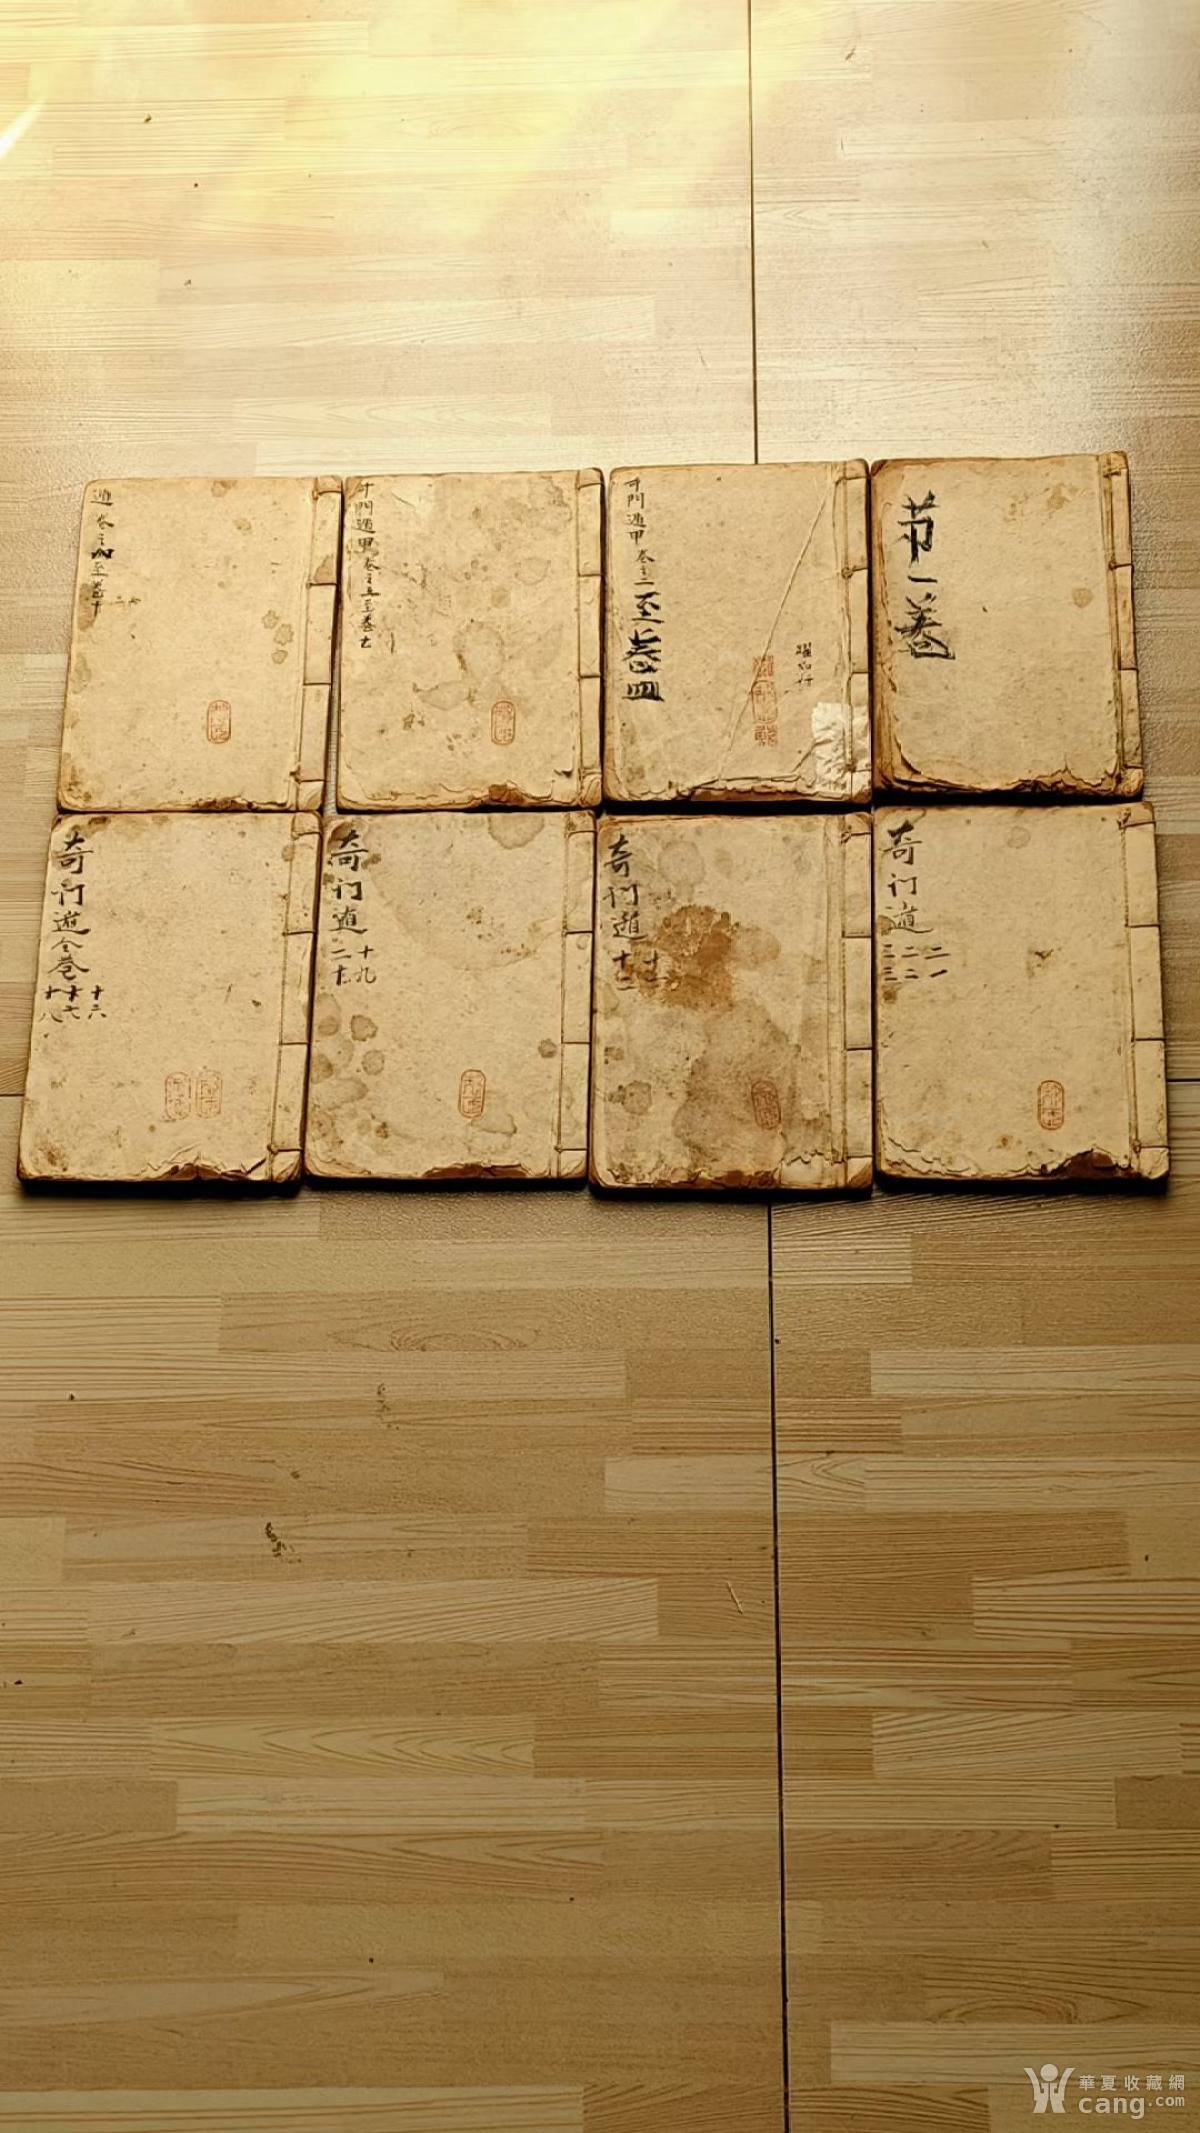 节一卷
奇門遁甲卷之二至卷四
奇門遁甲卷之五至卷七
遁卷之八至卷十
奇门遁
二一
二二
三三
奇门遁
十一
十二
奇门遁
十九
二十
奇门遁全卷
十六
十七
十八
華夏收藏網
cang.com